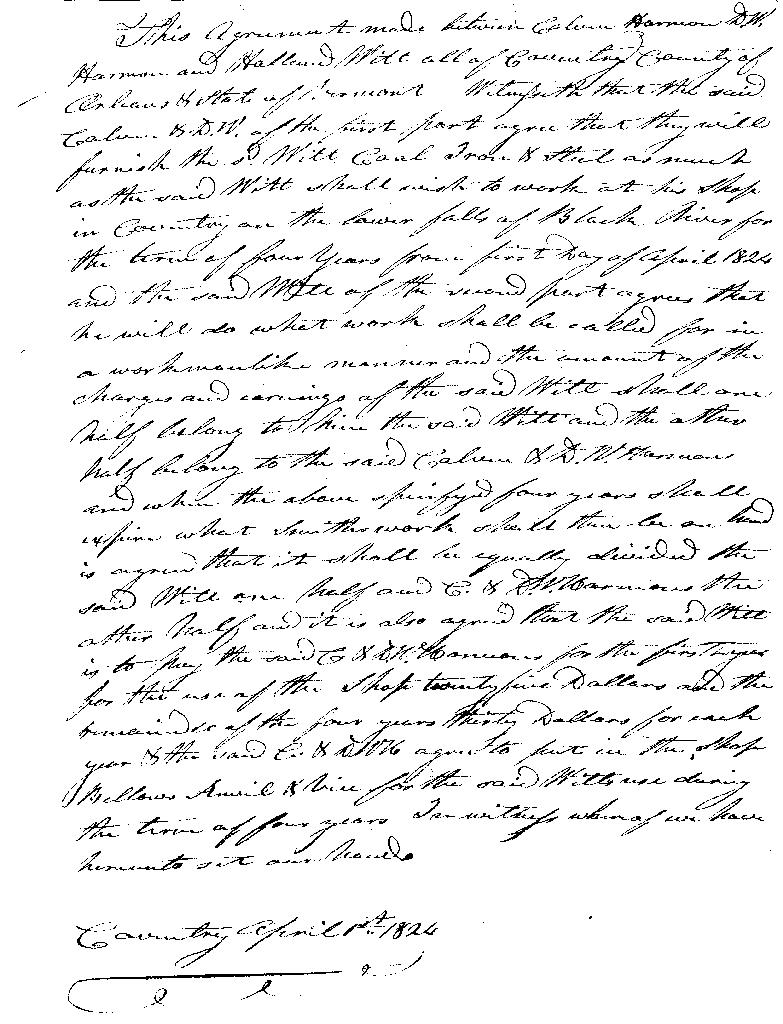 This Agreement made between Calvin Harmon D.W.
Harmon and Holland Witt all of Coventry County of
Orleans & State of Vermont Witnesseth that the said
Calvin & D.W. of the first part agree that they will
furnish the sd Witt Coal Iron & Steel as much
as the said Witt shall wish to work at his Shop
in Coventry on the lower falls of Black River for
the term of four Years from first Day of April 1824
and the said Witt of the second part agrees that
he will do what work shall be called for in
a workmanlike manner and the amount of the
charges and earnings of the said Witt shall one
half belong to him the said Witt and the other
half belong to the said Calvin & D.W. Harmons
and when the above specifyed four years shall
expire what Smithswork shall then be on hand
is agreed that it shall be equally divided the
said Witt one half and C. & D.W. Harmons the
other half and it is also agreed that the said Witt
is to pay the said C & D.W. Harmons for the first year
for the use of the Shop twenty five Dollars and the
remainder of the four years thirty Dollars for each
year & the said C. & D.W.H agree to put in the Shop
Bellows Anvil & Vice for the said Witts use during
the term of four years In witness whereof we have
hereunto set our hands
Coventry April 1st 1824